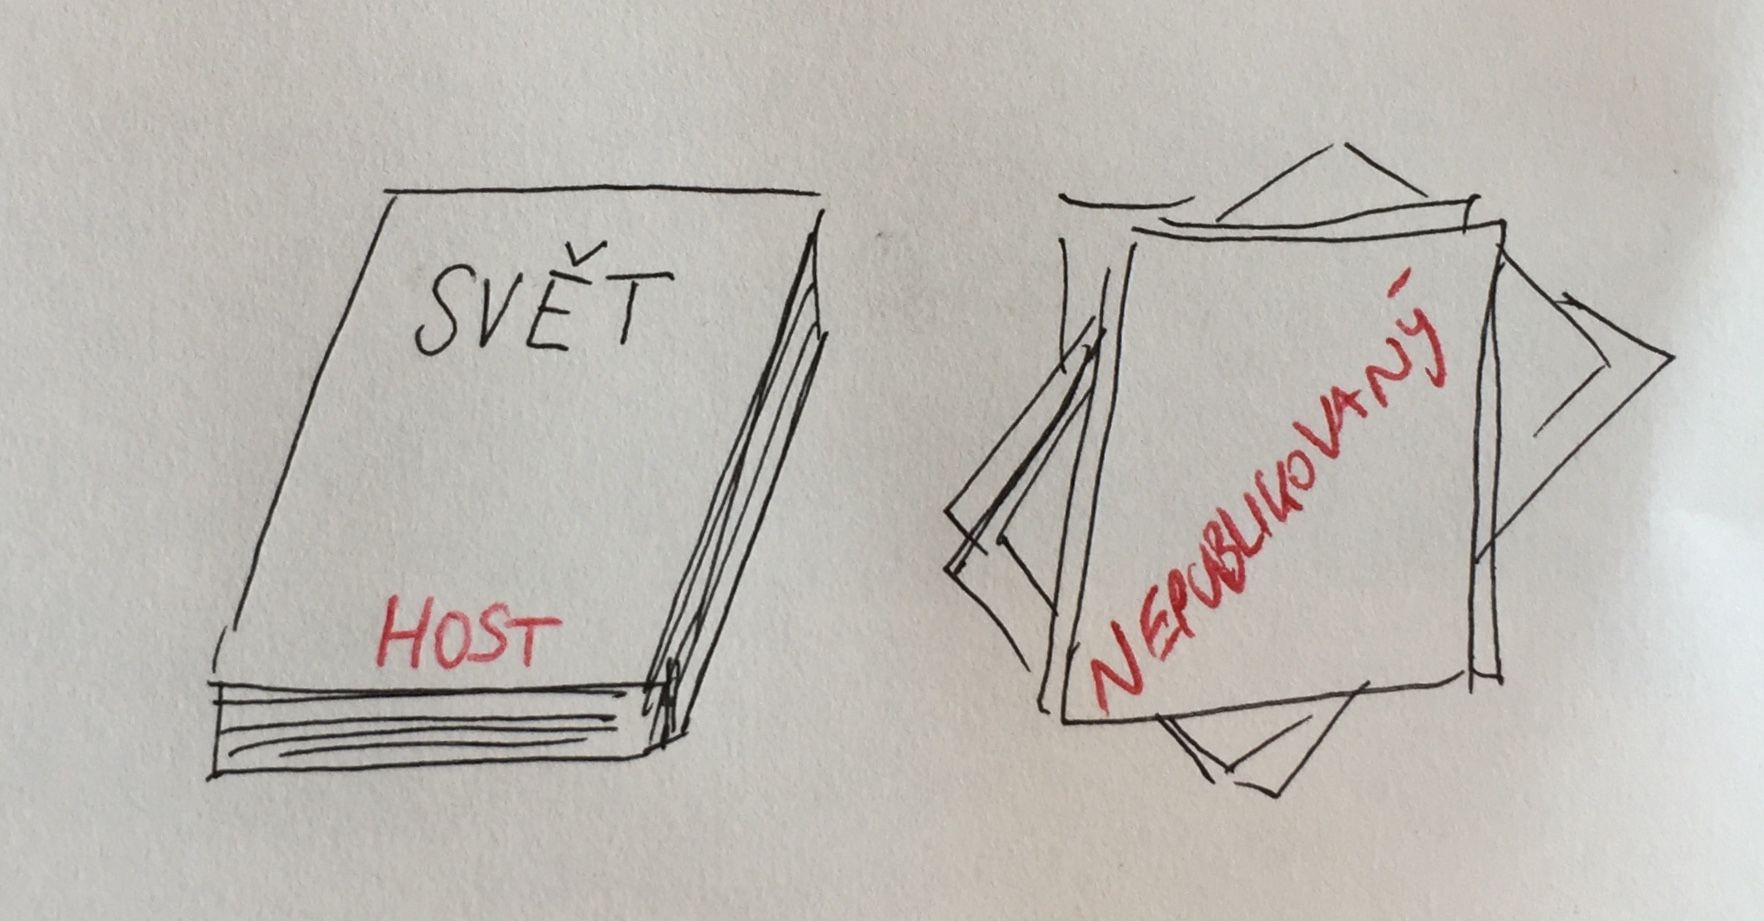 SVĚT
HOST
NEPUBLIKOVANÝ